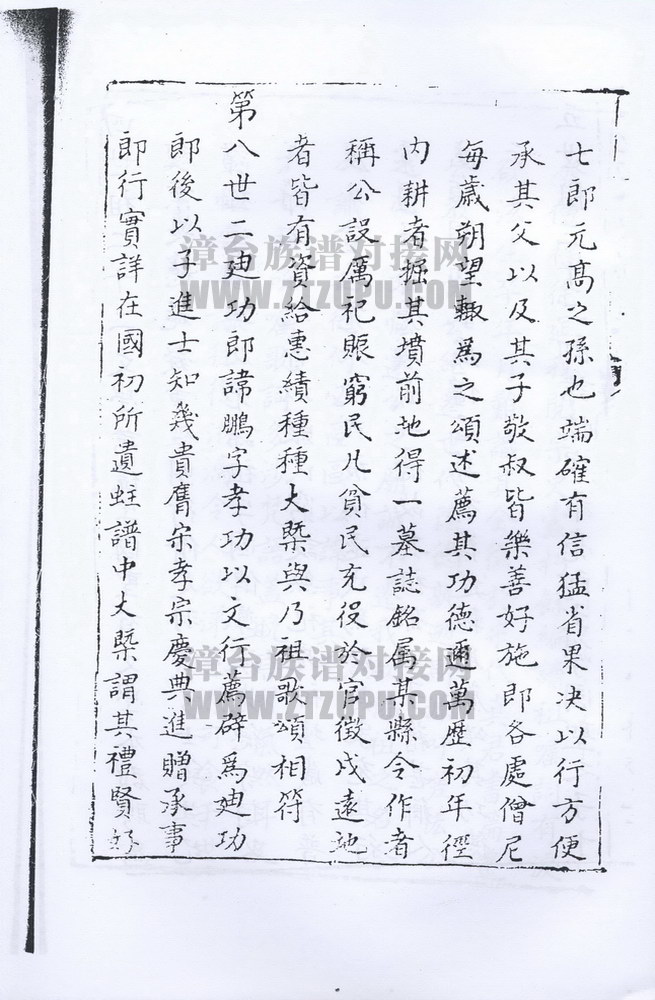 七郎元高之孫也端確有信猛省果决以行方便
承其父以及其子敬叔皆樂善好施即各處僧尼
每歲朔望輙為之頌述薦其功德邇萬歷初年徑
内耕者掘其墳前地得一墓誌銘属某縣令作者
稱公設厲祀賬窮民凡貧民充役於官徴戍遠地
者皆有資給惠績種種大槩與乃祖歌頌相符
第八世二廸功郎諱鵬字孝功以文行薦辟為廸功
郎後以子進士知幾貴膺宗孝宗慶典進贈承事
郎行實詳在國初所遺蛀譜中大槩謂其禮賢好
漳台族谱对接网
WWW.ZTZUPU.COM
漳台族谱对接网
WWW.ZTZUPU.COM